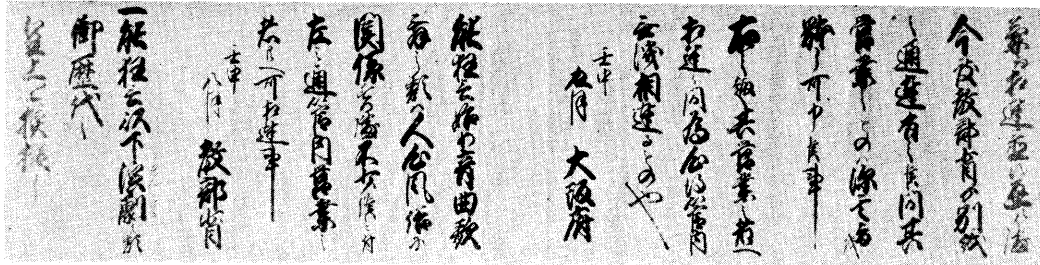 今度教部省ゟ別紙
之通達有之候間其
営業之もの深く
可申候事
右之趣其営業之者へ
相達候間為心得管内
無洩相達るものや
壬申
八月 大阪府
能狂言始め音曲歌
舞之類ハ人心風俗ニ
関係する處不少候ニ付
左之通管内営業之
者共へ可相達事
壬申
八月 教部省
一能狂言以下演劇之類
御歴代之
皇上ヲ模擬シ